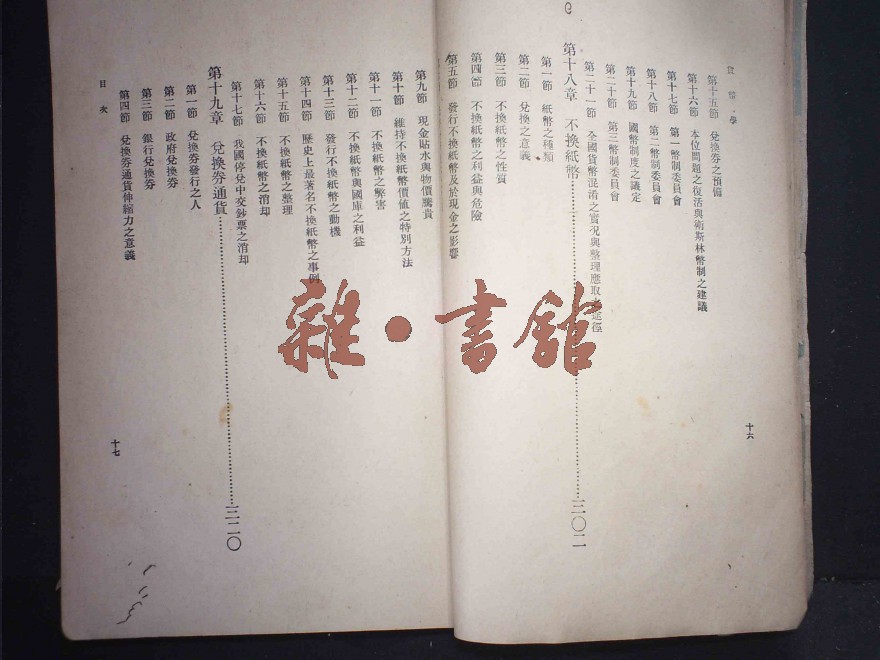 貨幣學
第十五節 兌換券之預備
第十六節 本位問題之復活與衛斯林幣制之建議
第十七節 第一幣制委員會
第十八節 第二幣制委員會
第十九節 國幣制度之議定
第二十節 第三幣制委員會
第二十一節 全國貨幣混淆之實況與整理應取之途徑
第十八章 不換紙幣……三〇二
第一節 紙幣之種類
第二節 兌換之意義
第三節 不換紙幣之性質
第四節 不換紙幣之利益與危險
第五節 發行不換紙幣及於現金之影響
十六
第九節 現金貼水與物價騰貴
第十節 維持不換紙幣價值之特別方法
第十一節 不換紙幣之弊害
第十二節 不換紙幣與國庫之利益
第十三節 發行不換紙幣之動機
第十四節 歷史上最著名不換紙幣之事例
第十五節 不換紙幣之整理
第十六節 不換紙幣之消却
第十七節 我國停兌中交鈔票之消却
第十九章 兌換券通貨……三二〇
第一節 兌換券發行之人
第二節 政府兌換券
第三節 銀行兌換券
第四節 兌換券通貨伸縮力之意義
目次
十七
雜·書館